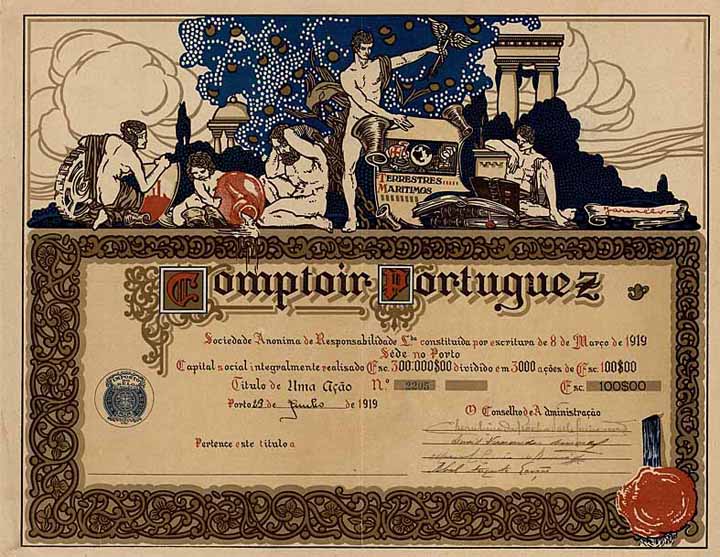 TERRESTRES
MARITIMOS
Comptoir Portuguez
Sociedade Anonima de Responsabilidade L.da constituida por escritura de 8 de Março de 1919
Séde no Porto
Capital social integralmente realisado Esc. 300:000$00 dividido em 3000 ações de Esc. 100$00
Titulo de Uma Ação N.º 2205 Esc. 100$00
Porto de Junho de 1919
O Conselho de Administração
Pertence este titulo a